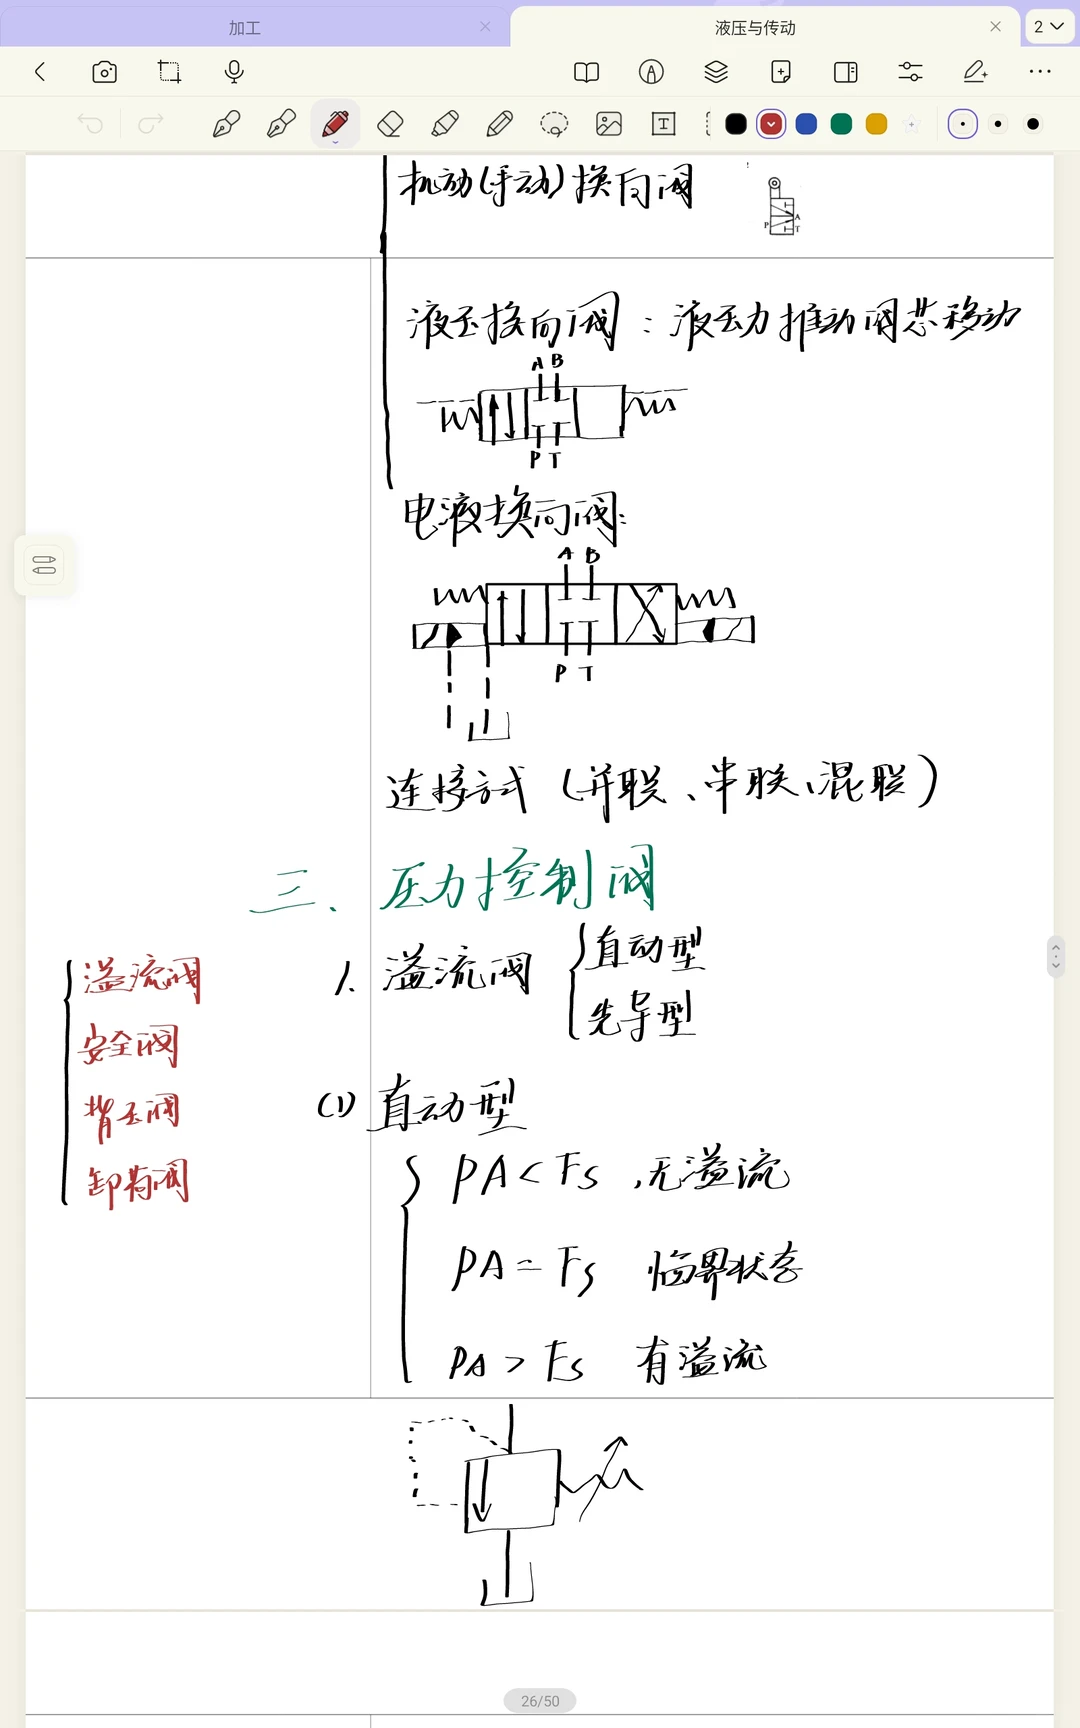 加工
液压与传动
2
机动(手动)换向阀
A
P
T
液压换向阀：液压力推动阀芯移动
A B
P T
电液换向阀：
A B
P T
连接方式（并联、串联、混联）
三、压力控制阀
1. 溢流阀 直动型
先导型
溢流阀
安全阀
背压阀
卸荷阀
(1) 直动型
PA < Fs，无溢流
PA = Fs 临界状态
PA > Fs 有溢流
26/50